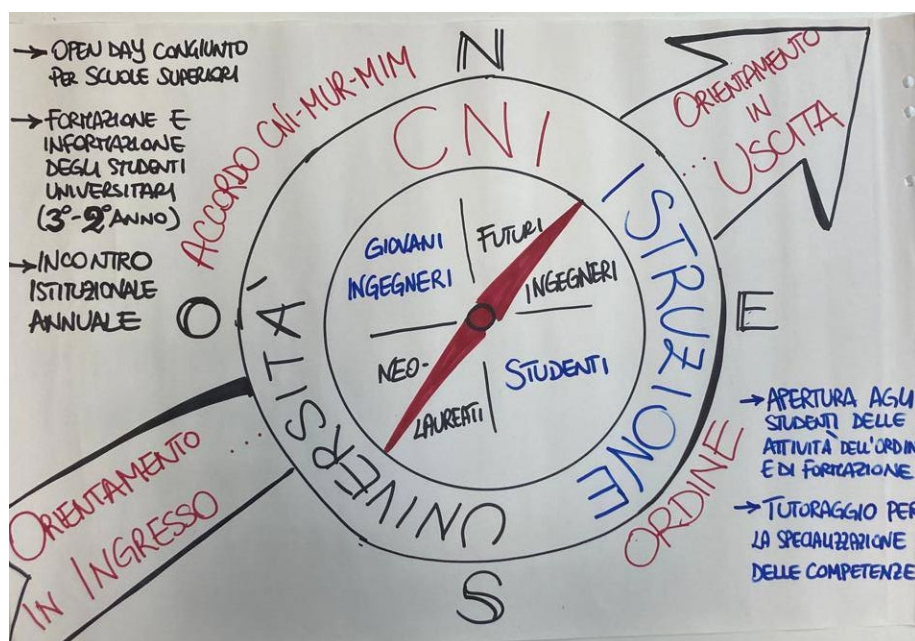 → OPEN DAY CONGIUNTO
PER SCUOLE SUPERIORI
→ FORMAZIONE E
INFORMAZIONE
DEGLI STUDENTI
UNIVERSITARI
(3°-2° ANNO)
→ INCONTRO
ISTITUZIONALE
ANNUALE
ACCORDO CNI-MUR-MIM
N
O
E
S
CNI
ISTRUZIONE
UNIVERSITA'
GIOVANI
INGEGNERI
FUTURI
INGEGNERI
NEO-
LAUREATI
STUDENTI
ORIENTAMENTO
IN
USCITA
...
ORIENTAMENTO
IN INGRESSO
...
ORDINE
→ APERTURA AGLI
STUDENTI DELLE
ATTIVITÀ DELL'ORDIN
E DI FORMAZIONE
→ TUTORAGGIO PER
LA SPECIALIZZAZIONE
DELLE COMPETENZE